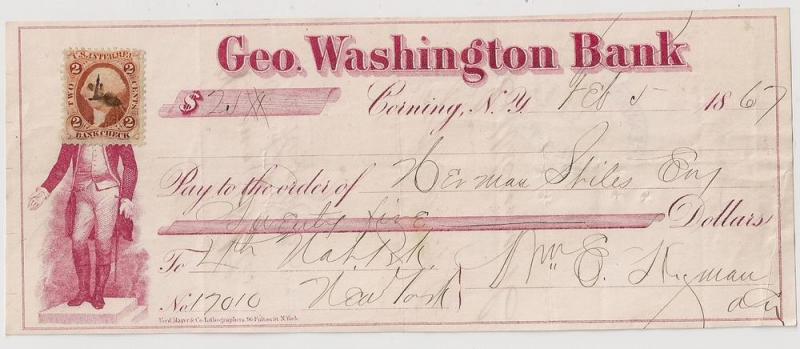 Geo. Washington Bank
U.S. INTER. REV.
TWO CENTS
2 2
BANK CHECK
$
Corning, N.Y. Feb 5 1867
Pay to the order of Herman Stiles Esq
Twenty five Dollars
To 4th Nat. Bk.
Wm E.
No. 17010 New York
Ferd. Mayer & Co. Lithographers, 96 Fulton St. N.York.